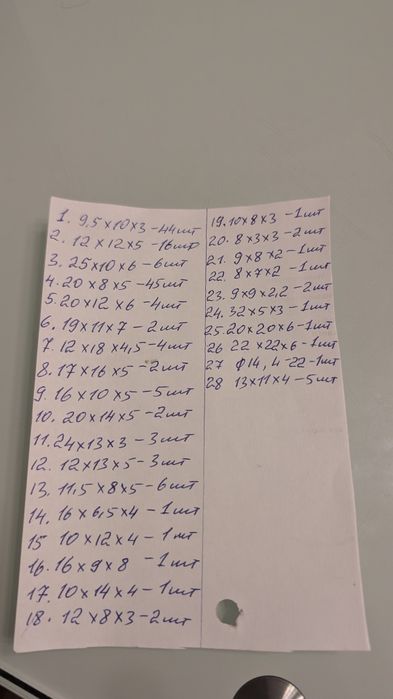 1. 9,5×10×3 -44шт
2. 12×12×5 -16шт
3. 25×10×6 -6шт
4. 20×8×5 -45шт
5. 20×12×6 -4шт
6. 19×11×7 -2шт
7. 12×18×4,5 -4шт
8. 17×16×5 -2шт
9. 16×10×5 -5шт
10. 20×14×5 -2шт
11. 24×13×3 -3шт
12. 12×13×5 -3шт
13. 11,5×8×5 -6шт
14. 16×6,5×4 -1шт
15 10×12×4 -1шт
16. 16×9×8 -1шт
17. 10×14×4 -1шт
18. 12×8×3 -2шт
19. 10×8×3 -1шт
20. 8×3×3 -2шт
21. 9×8×2 -1шт
22. 8×7×2 -1шт
23. 9×9×2,2 -2шт
24. 32×5×3 -1шт
25. 20×20×6 -1шт
26 22×22×6 -1шт
27 ф14, 4-22 -1шт
28 13×11×4 -5шт